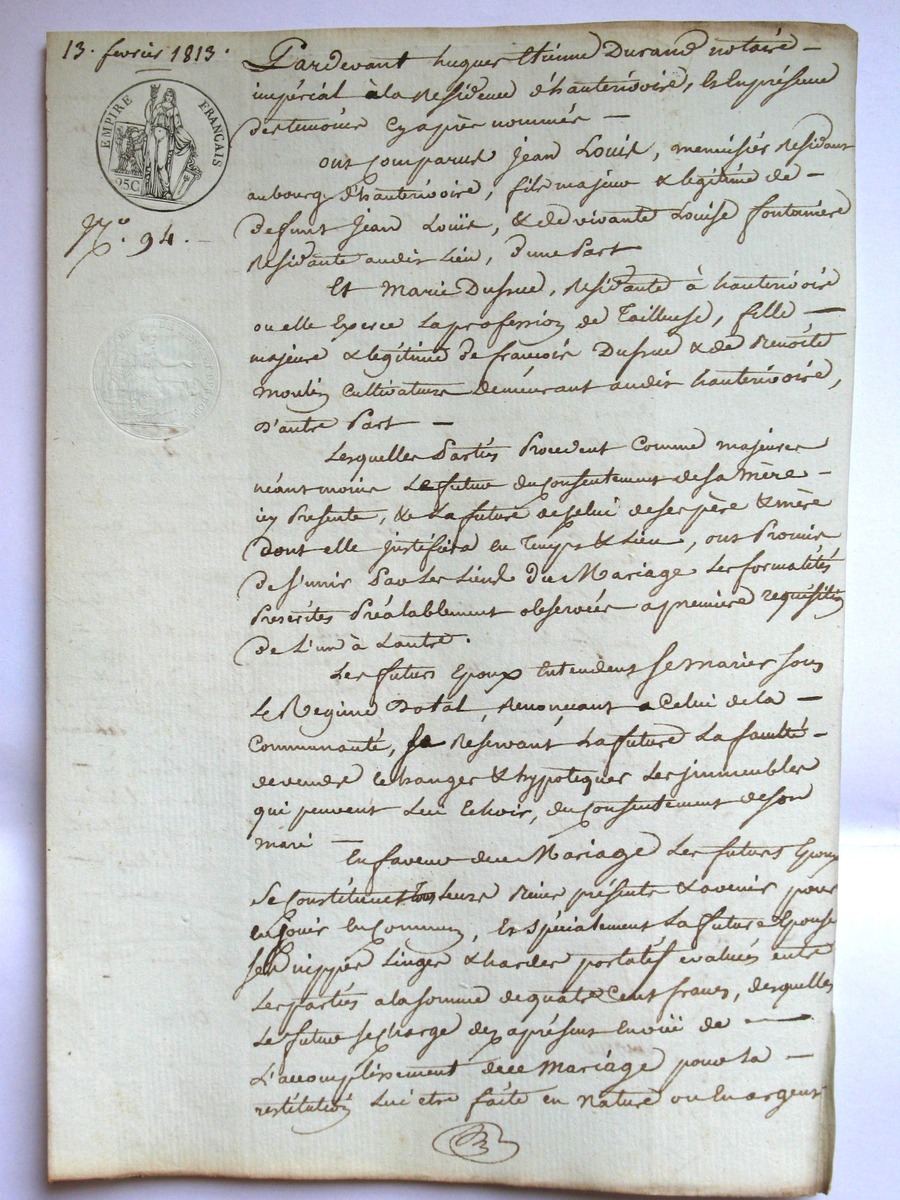 13. fevrier 1813.
EMPIRE FRANÇAIS
25C
N.º 94.
Pardevant hugues Etienne Durand notaire
impérial à la Residence d'hauterivoire, Et En présence
des temoins Cyaprès nommés
ont Comparus Jean Louis, menuisier Residant
au bourg d'hauterivoire, fils majeur & legitime de
defunt Jean Louis, & de vivante Louise fontaniere
Residante audit Lieu, d'une Part
Et Marie Dussud, Residante à hauterivoire
ou elle Exerce la profession de Tailleuse, fille
majeure & legitime de françois Dussud & de Benoîte
moulin Cultivateurs demeurant audit hauterivoire,
d'autre Part
Lesquelles Parties Procedent Comme majeures
néant moins Le futur du Consentement de sa Mère
icy Presente, & La future de Celui de ses père & mère
dont elle justifiera en Temps & Lieu, ont Promis
de s'unir Par Les Liens du Mariage Les formalités
Prescrites Préalablement observées a première requisition
de L'un à L'autre.
Les futurs Epoux Entendent Se marier sous
Le Regime Dotal, Renonçant a Celui de la
Communauté, se Réservant La future La faculté
de vendre Echanger & hypotequer Les immeubles
qui peuvent Lui Echoir, du Consentement de son
mari
En faveur de ce Mariage Les futurs Epoux
Se Constituent tous Leurs Biens présents & avenir pour
En Jouir En Commun, Et Spécialement La future Epouse
ses nippes Linges & hardes portatifs evalués entre
Les parties a la somme de quatre Cent francs, desquelles
Le futur se Charge des aprésent En vüe de
L'accomplissement de ce Mariage pour La
restitution Lui etre faite en Nature ou En argent